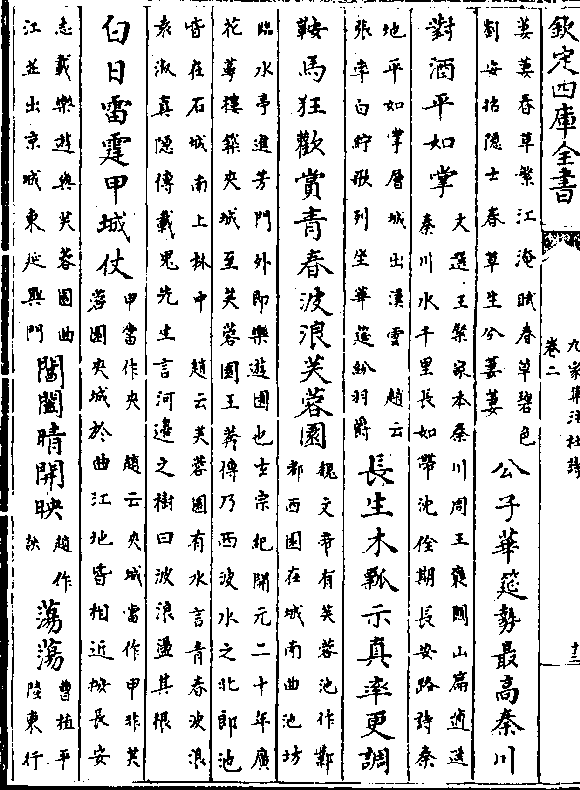 欽定四庫全書
九家集注杜詩
卷二
十三
萋萋春草繁江淹賦春草碧色
劉安招隱士春草生兮萋萋
公子華筵勢最高秦川
對酒平如掌
文選王粲家本秦川周王褒關山篇逍遥
秦川水千里長如帶沈佺期長安路詩秦
地平如掌層城出漢雲 趙云
張率白紵歌列坐華筵紛羽爵
長生木瓢示真率更調
鞍馬狂歡賞青春波浪芙蓉園
魏文帝有芙蓉池作鄴
都西園在城南曲池坊
臨水亭進芳門外即樂遊園也玄宗紀開元二十年廣
花萼樓築夾城至芙蓉園王莽傳乃西波水之北郎池
皆在石城南上林中 趙云芙蓉園有水言青春波浪
袁淑真隱傳載鬼先生言河邊之樹曰波浪盪其根
白日雷霆甲城仗
甲當作夾 趙云夾城當作甲非芙
蓉園夾城於曲江地皆相近按長安
志載樂遊與芙蓉園曲
江並出京城東延興門
閶闔晴開映
趙作
詄
蕩蕩
曹植平
陵東行